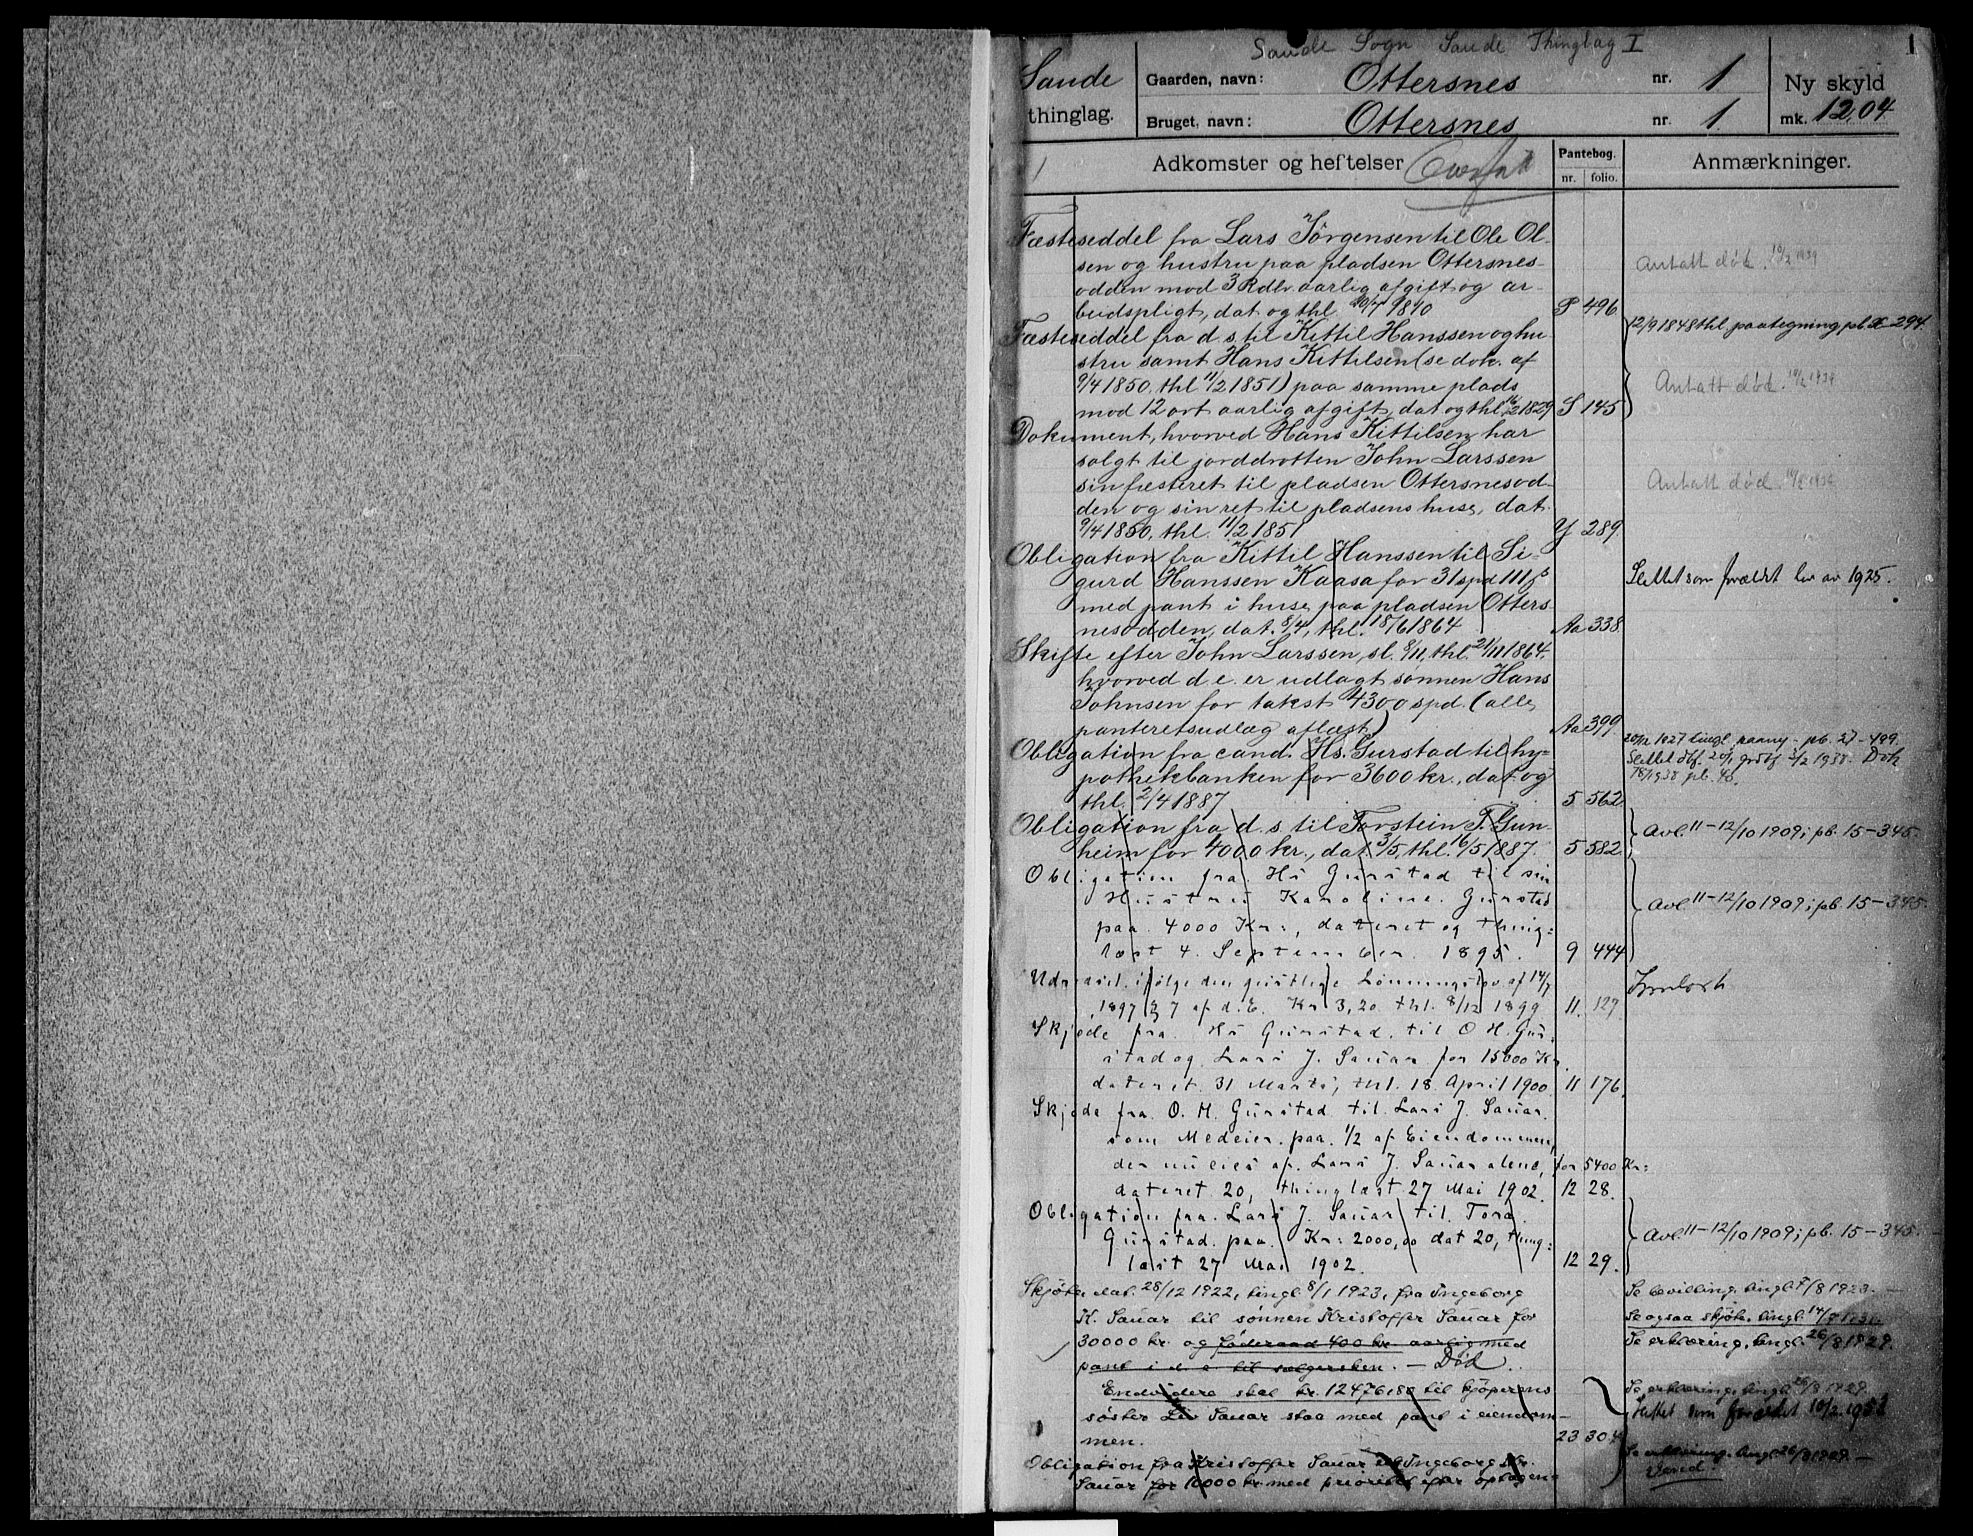 Sande Sogn Sande Thinglag I
1
Sande
thinglag.
Gaarden, navn: Ottersnes nr. 1
Bruget, navn: Ottersnes nr. 1.
Ny skyld
mk. 12,04
1 Adkomster og heftelser Overført
Pantebog.
nr. folio.
Anmærkninger.
Fæsteseddel fra Lars Jörgensen til Ole Ol-
sen og hustru paa pladsen Ottersnes-
odden mod 3 Rdlr aarlig afgift og ar-
beidspligt, dat og thl. P 496
Antatt död. 10/2 1939
Fæsteseddel fra d. s. til Kittil Hanssen og hu-
stru samt Hans Kittilsen (se dok. af
9/4 1850, thl 11/2 1851) paa samme plads
mod 12 ort aarlig afgift, dat og thl. 16/2 1829 S 145
12/9 1848 thl. paategning pb. X 294.
Antatt död. 10/2 1939
Dokument, hvorved Hans Kittilsen har
solgt til jorddrotten John Larssen
sin fæsteret til pladsen Ottersnesod-
den og sin ret til pladsens huse, dat.
9/4 1850, thl. 11/2 1851 Y 289.
Antatt död. 10/2 1939
Obligation fra Kittil Hanssen til Si-
gurd Hanssen Kaasa for 31 spd 111 s
med pant i huse paa pladsen Otters-
nesodden, dat. 8/4, thl. 18/6 1864 Aa 338.
Slettet som forældet lov av 1925.
Skifte efter John Larssen, sl. 8/11, thl. 21/11 1864,
hvorved d. e. er udlagt sønnen Hans
Johnsen for takst 4300 spd. (alle
panteretsudlæg aflæst) Aa 399.
Obligation fra cand. Hs. Gurstad til hy-
pothekbanken for 3600 kr., dat og
thl. 2/4 1887 5 562
pb. 27-489.
Obligation fra d. s. til Torstein T. Gun-
heim for 4000 kr., dat. 3/5, thl. 16/5 1887. 5 582
Avl. 11-12/10 1909; pb. 15-345.
Obligation fra Hs Gurstad til sin
Hustru Karoline Gurstad
paa 4000 Kr:, dateret og thing:
læst 4. September 1895. 9 444
Avl. 11-12/10 1909; pb. 15-345.
Udredsel. ifølge den geistlige Lønningslov af 14/7
1897 § 7 af d. E. Kr 3,20 thl. 8/12 1899 11. 127.
Innløst
Skjøde fra Hs Gurstad til O H. Gur:
stad og Lars J. Sauar for 15000 Kr.
dateret 31 Marts, thl. 18 April 1900. 11 176.
Skjøde fra O. H. Gurstad til Lars J. Sauar
som Medeier paa 1/2 af Eiendommen,
der nu eies af Lars J. Sauar alene, for 5400 Kr:
dateret 20, thinglæst 27 Mai 1902. 12 28.
Obligation fra Lars J. Sauar til Tora
Gurstad paa Kr: 2000,00 dat 20, thing:
læst 27 Mai 1902. 12 29.
Avl. 11-12/10 1909; pb. 15-345.
Skjöte, dat. 28/12 1922, tingl. 8/1 1923, fra Ingeborg
K. Sauar til sönnen Kristoffer Sauar for
30000 kr. og föderaad 400 kr. aarlig med
pant i d e til sælgersken. - Död.
Se bevilling, tingl. 9/8 1923.
Se ogsaa skjöte, tingl.
Se erklæring, tingl. 26/8 1929.
Endvidere skal kr. 12476,80 til kjöperens
söster Liv Sauar staa med pant i eiendom-
men. 23 304
Se erklæring, tingl. 26/8 1929
Slettet som forældet
Obligation fra Kristoffer Sauar til Ingeborg
Sauar for 10000 kr. med prioritet efter optagen
Se erklæring, tingl. 26/8 1929 -